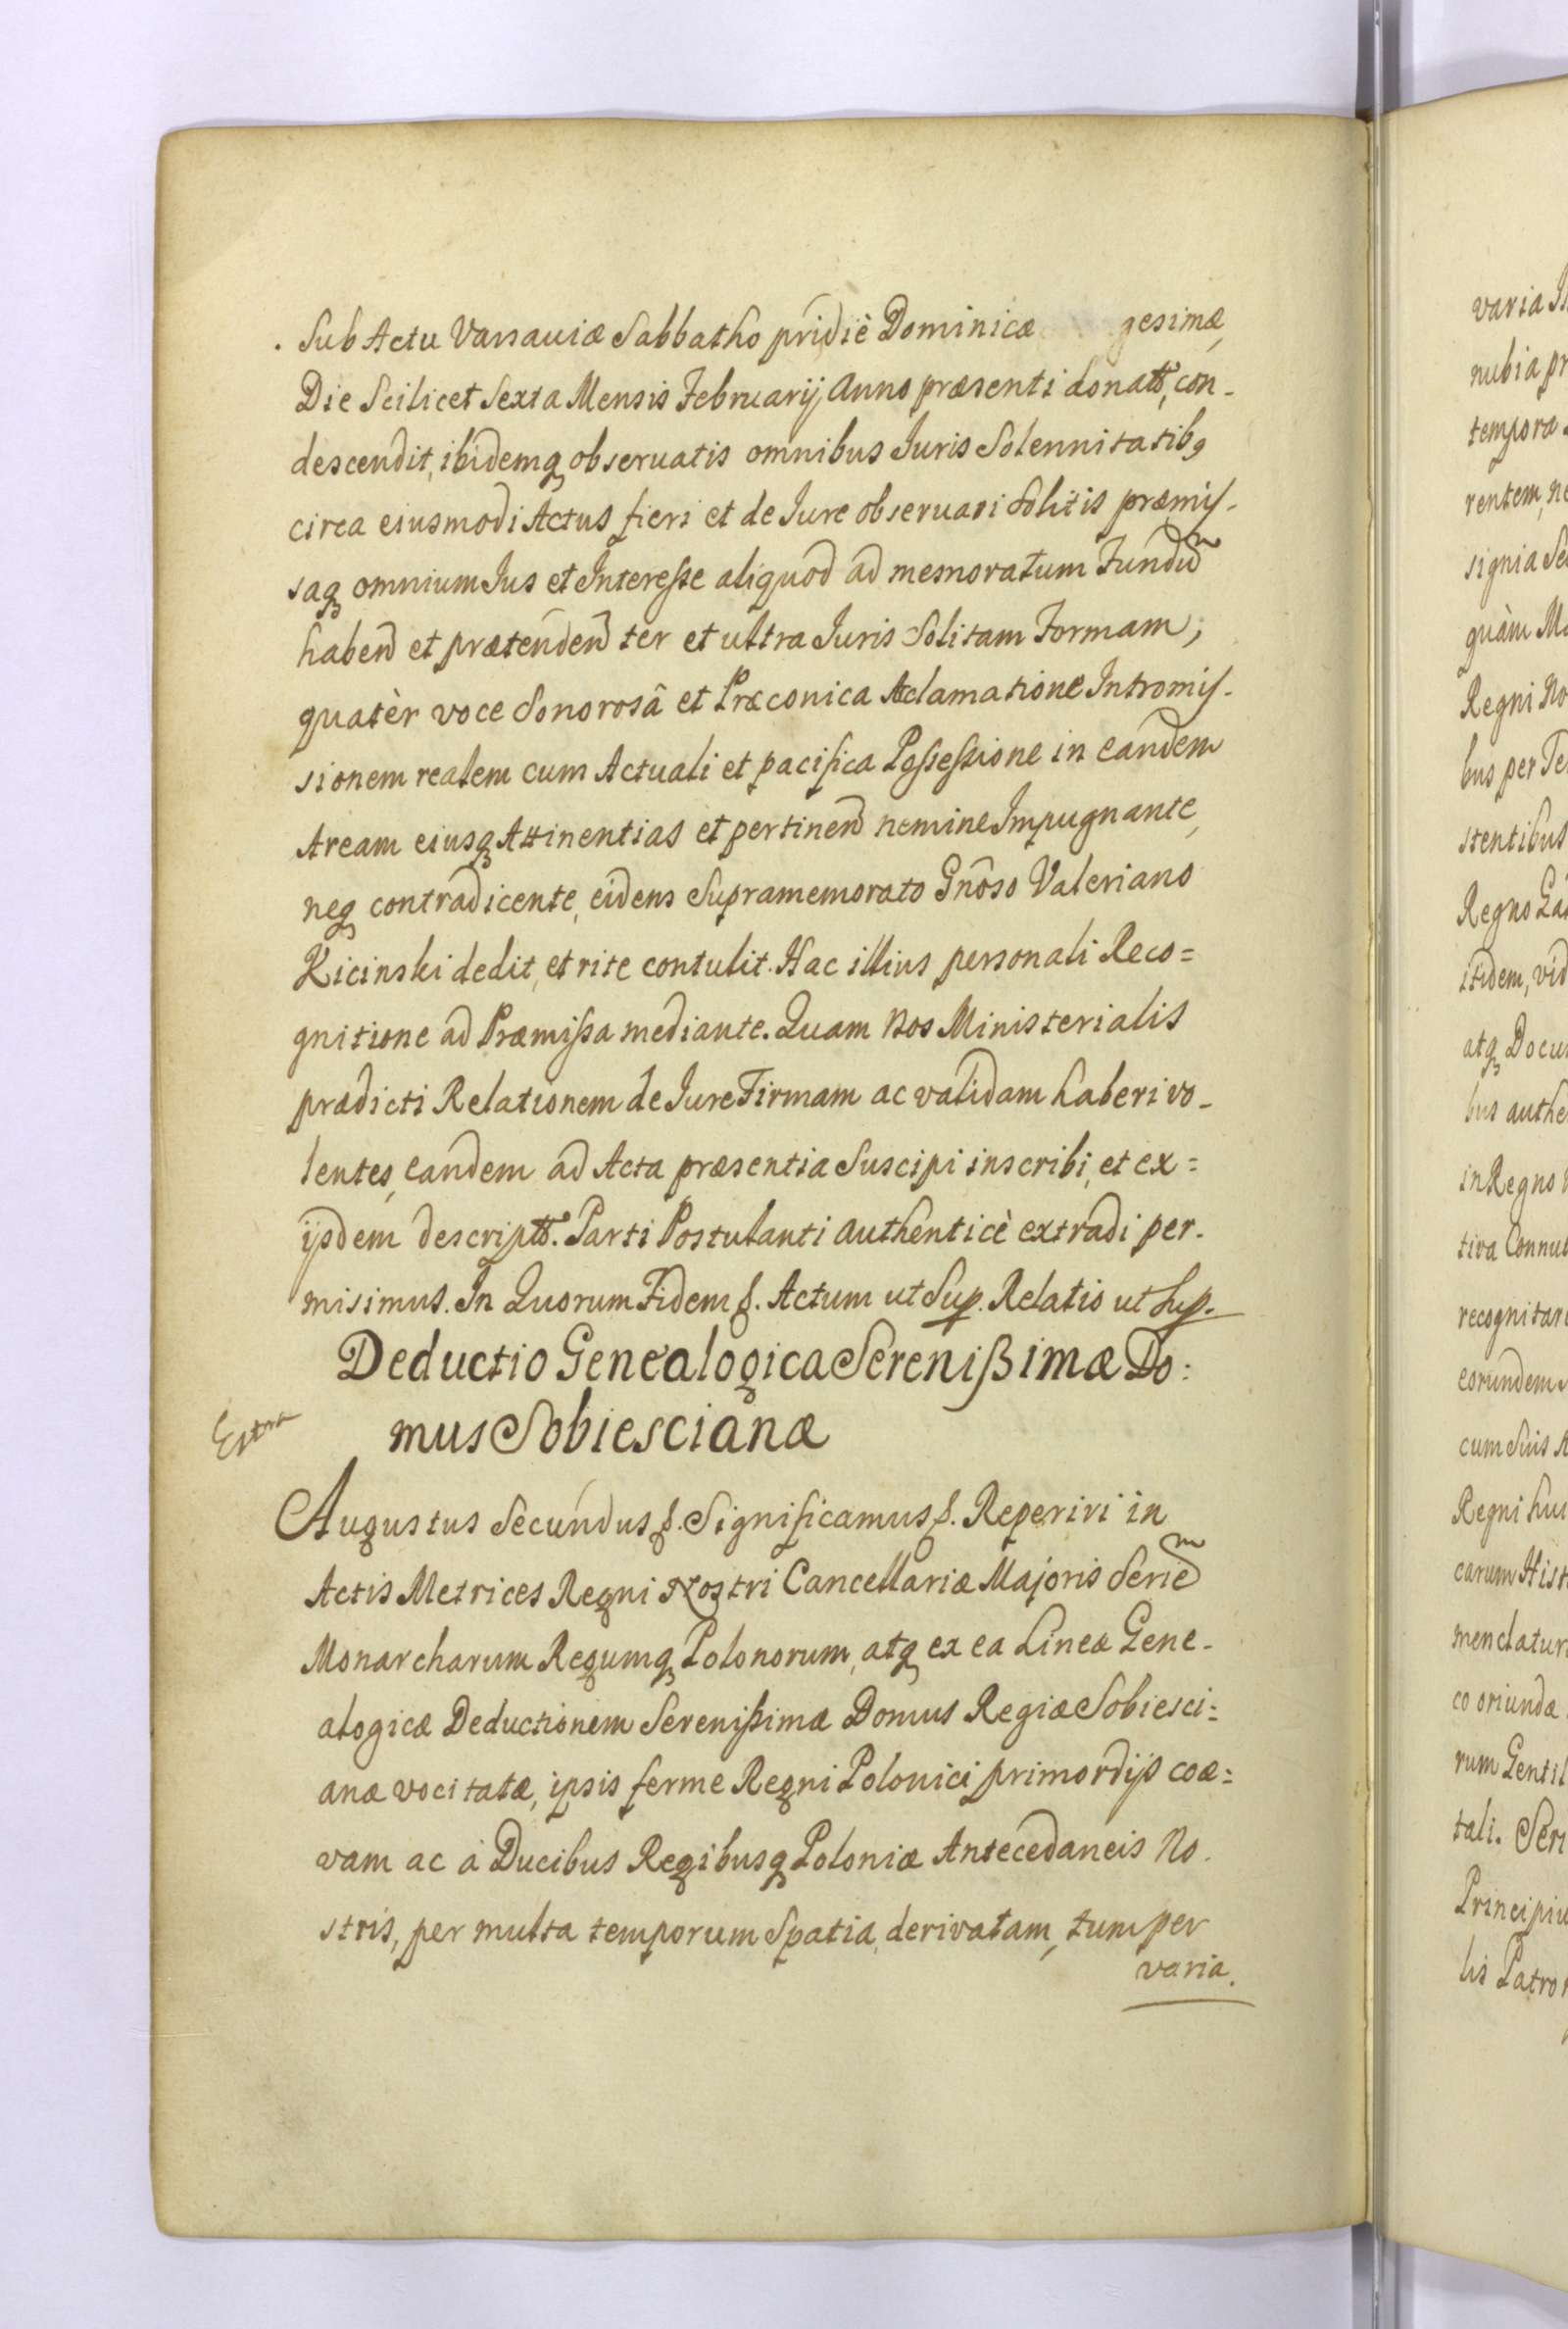 . Sub Actu Varsauiæ Sabbatho pridiè Dominicæ gesimæ,
Die Scilicet Sexta Mensis Februarij Anno præsenti donatt, con-
descendit, ibidemq observatis omnibus Juris Solennitatib9
circa eiusmodi Actus fieri et de Jure observari solitis præmis-
saq omnium Jus et Interesse aliquod ad memoratum Fundũ
habend et prætendend ter et ultra Juris Solitam Formam,
quatèr voce sonorosâ et Præconica Aclamatione Intromis-
sionem realem cum Actuali et pacifica Possessione in eandem
Aream eiusq Attinentias et pertinend nemine Impugnante,
neq contradicente, eidem Supramemorato Gnõso Valeriano
Kicinski dedit, et rite contulit. Hac illius personali Reco=
gnitione ad Præmissa mediante. Quam Nos Ministerialis
prædicti Relationem de Jure Firmam ac validam haberi vo-
lentes, eandem ad Acta præsentia Suscipi inscribi, et ex=
ijsdem descriptt. Parti Postulanti authenticè extradi per-
misimus. In Quorum Fidem &. Actum ut Sup. Relatio ut Sup.
Deductio Genealogica Serenißimæ Do:
mus Sobiescianæ
Extra
Augustus Secundus &. Significamus &. Reperiri in
Actis Metrices Regni Nostri Cancellariæ Majoris Seriẽ
Monarcharum Regumq Polonorum, atq ex ea Lineæ Gene-
alogicæ Deductionem Serenißimæ Domus Regiæ Sobiesci=
anæ vocitatæ, ipsis ferme Regni Polonici primordijs coæ=
vam ac à Ducibus Regibusq Poloniæ Antecedaneis No-
stris, per multa temporum Spatia, derivatam, tum per
varia.